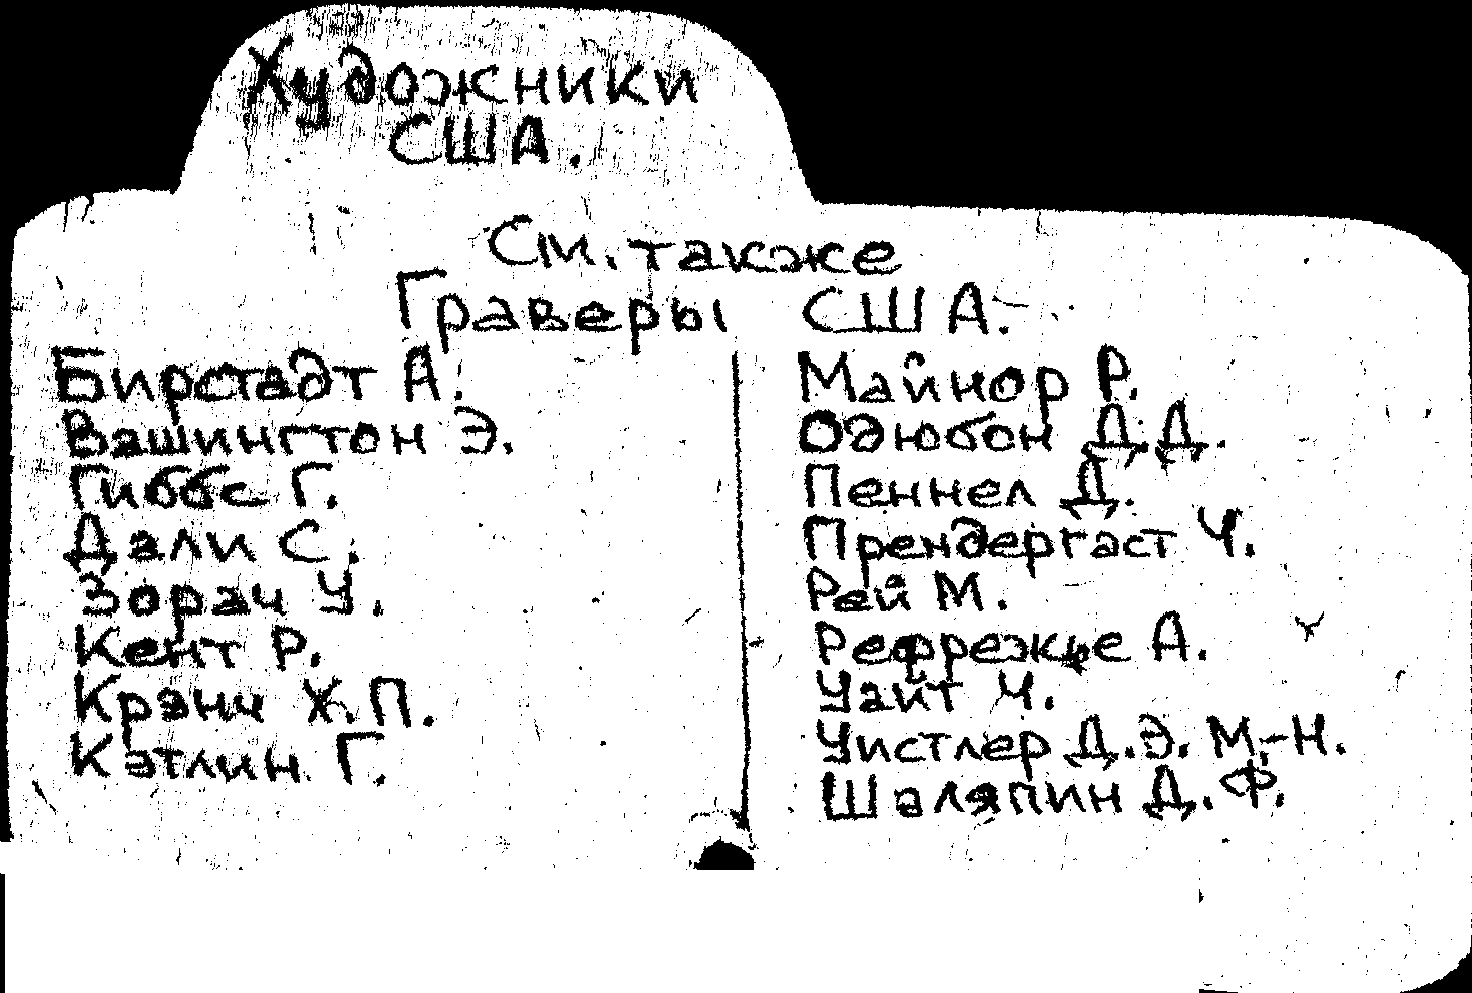 Художники
США.
См. также
Граверы США.
Бирстадт А.
Вашингтон Э.
Гиббс Г.
Дали С.
Зорач У.
Кент Р.
Крэнч Х.П.
Кэтлин Г.
Майнор Р.
Одюбон Д.Д.
Пеннел Д.
Прендергаст Ч.
Рей М.
Рефрежье А.
Уайт Ч.
Уистлер Д.Э. М.-Н.
Шаляпин Д.Ф.